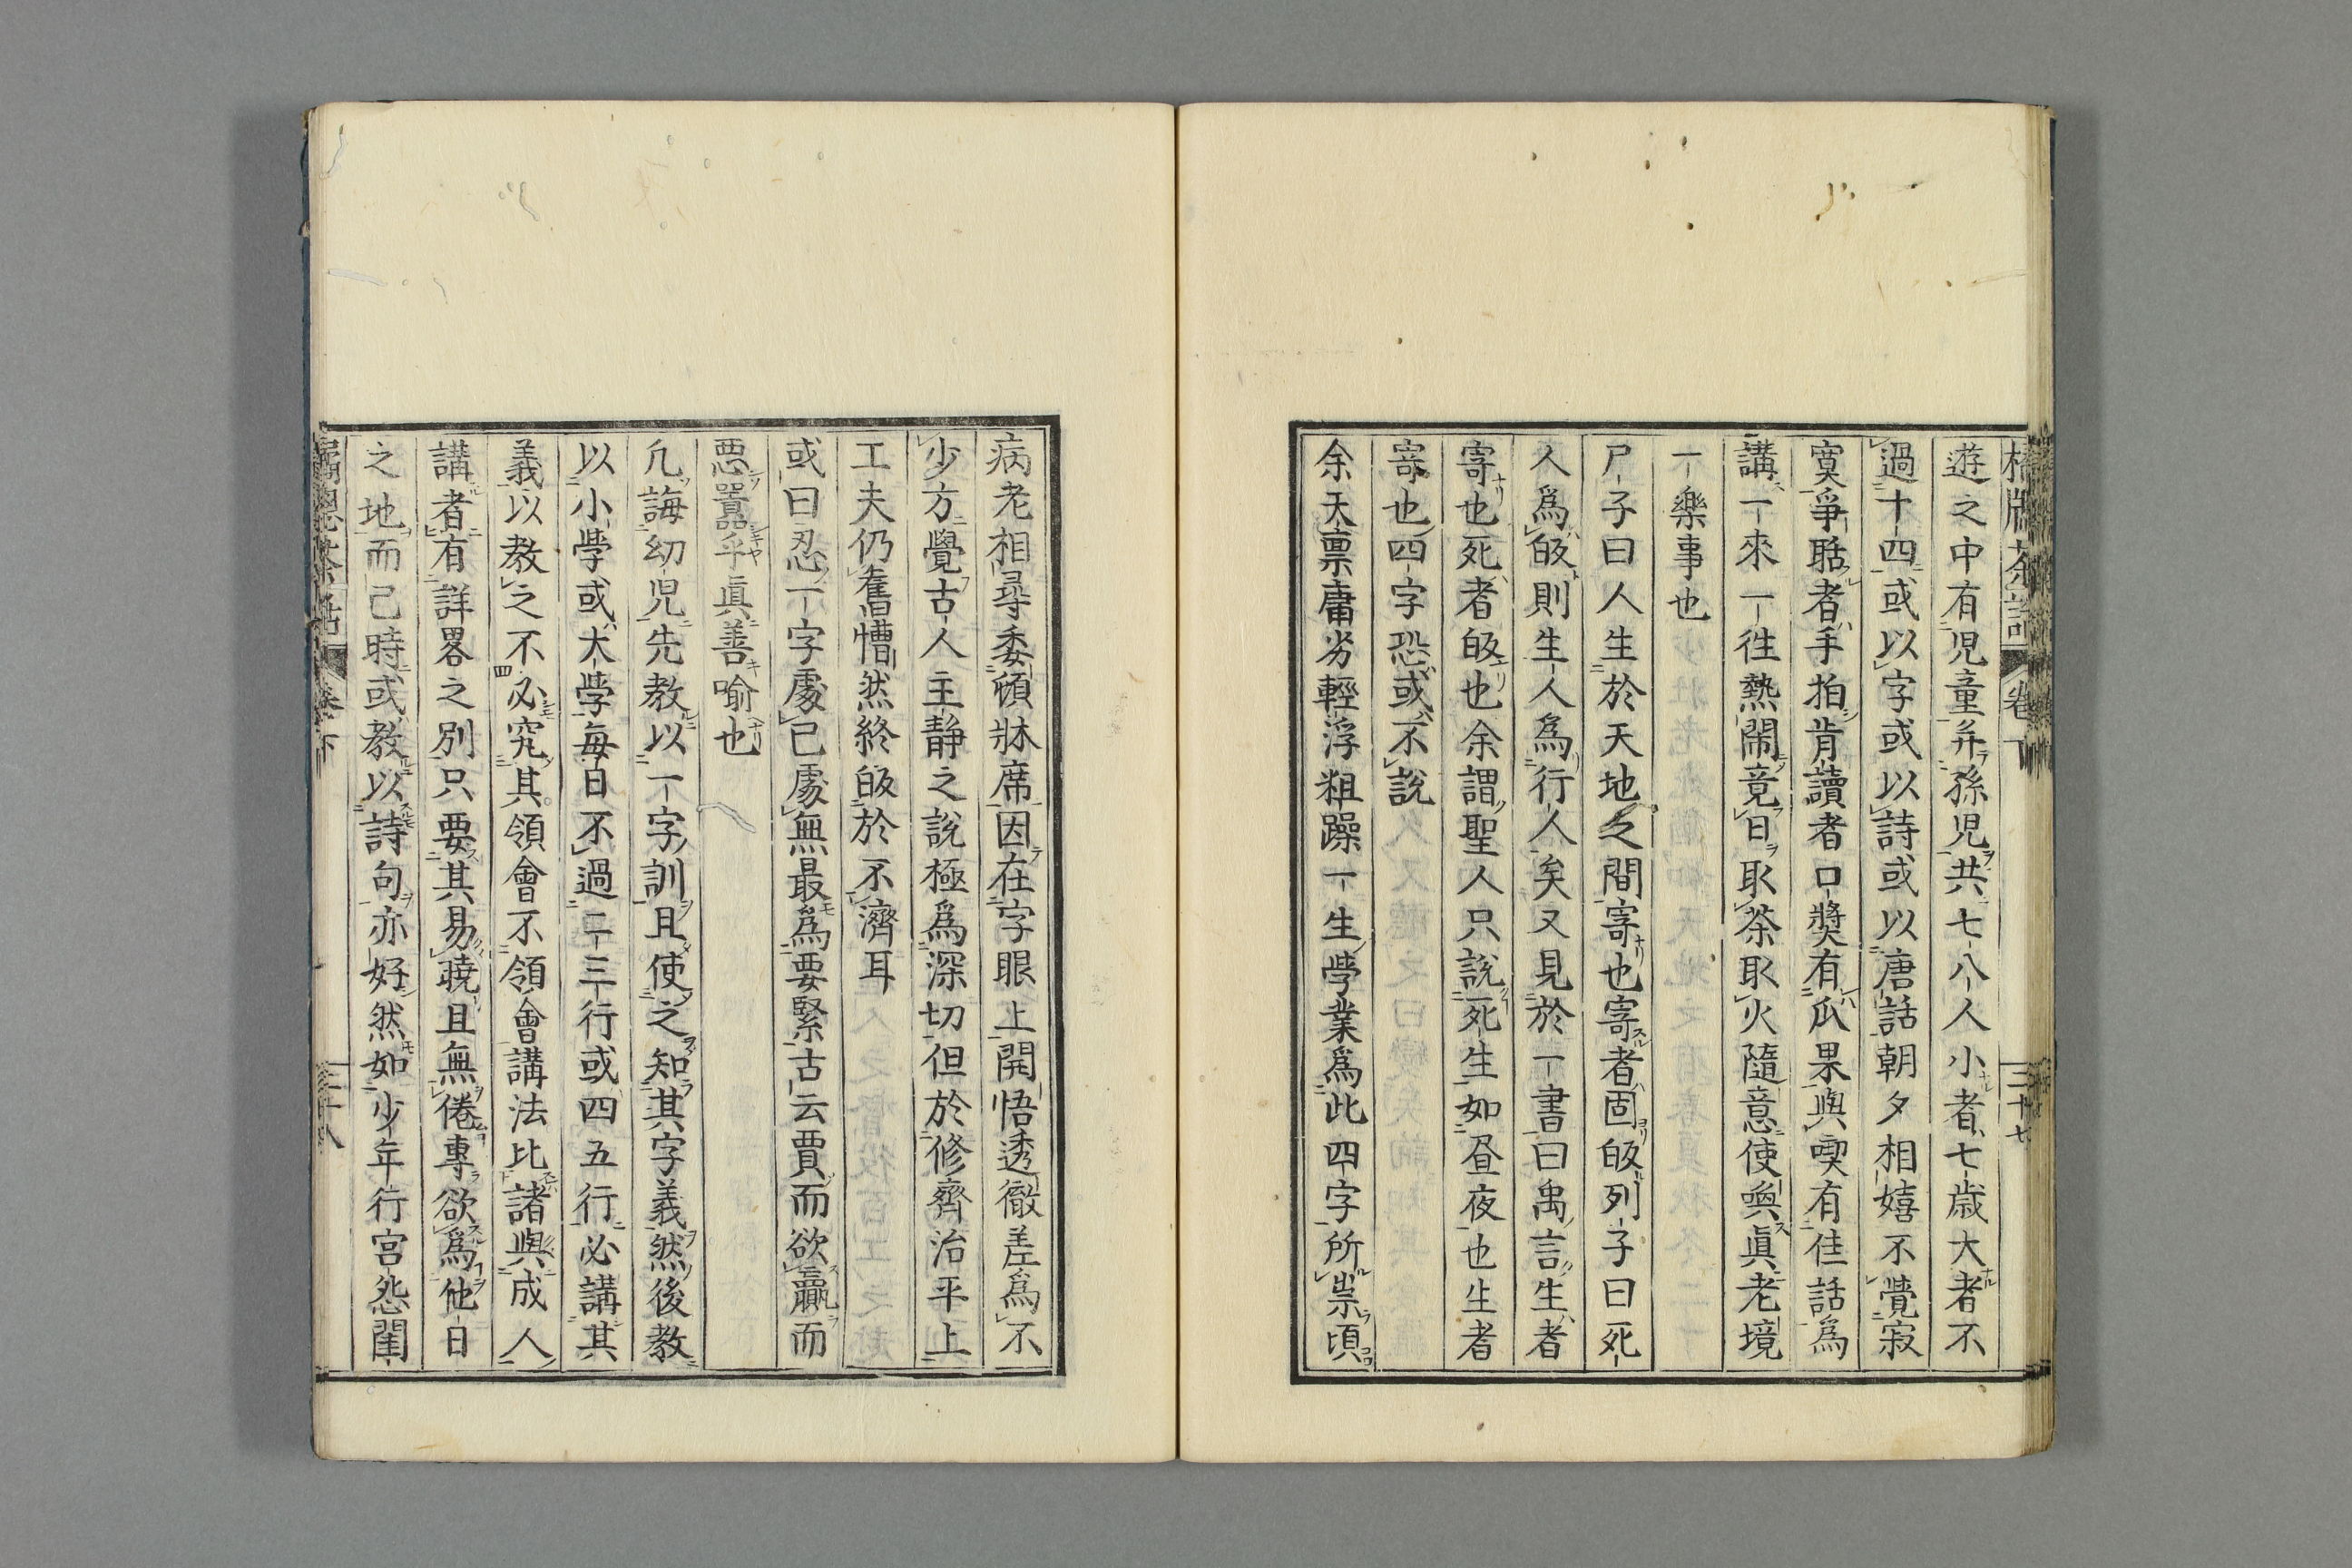 遊之中有児童弁孫児共七八人小者七歳大者不
過十四或以字或以詩或以唐話朝夕相嬉不覺寂
寞爭聒者手拍肯讀者口奬有瓜果與喫有佳話爲
講一來一徃熱閙竟日取茶取火隨意使喚眞老境
一樂事也
尸子曰人生於天地之間寄也寄者固皈列子曰死
人爲皈則生人爲行人矣又見於一書曰禹言生者
寄也死者皈也余謂聖人只説死生如昼夜也生者
寄也四字恐或不説
余天禀庸劣輕浮粗躁一生學業爲此四字所祟頃
卷下
三十七
病老相尋委頓牀席因在字眼上開悟透徹差爲不
少方覺古人主靜之説極爲深切但於修齊治平上
工夫仍舊懵然終皈於不濟耳
或曰忍一字處己處無最爲要緊古云賈而欲贏而
惡囂乎眞善喩也
凢誨幼児先教以一字訓且使之知其字義然後教
以小學或大學毎日不過二三行或四五行必講其
義以教之不必究其領會不領會講法比諸與成人
講者有詳畧之別只要其易曉且無倦專欲爲他日
之地而已時或教以詩句亦好然如少年行宮怨閨
茶話
卷下
三十八